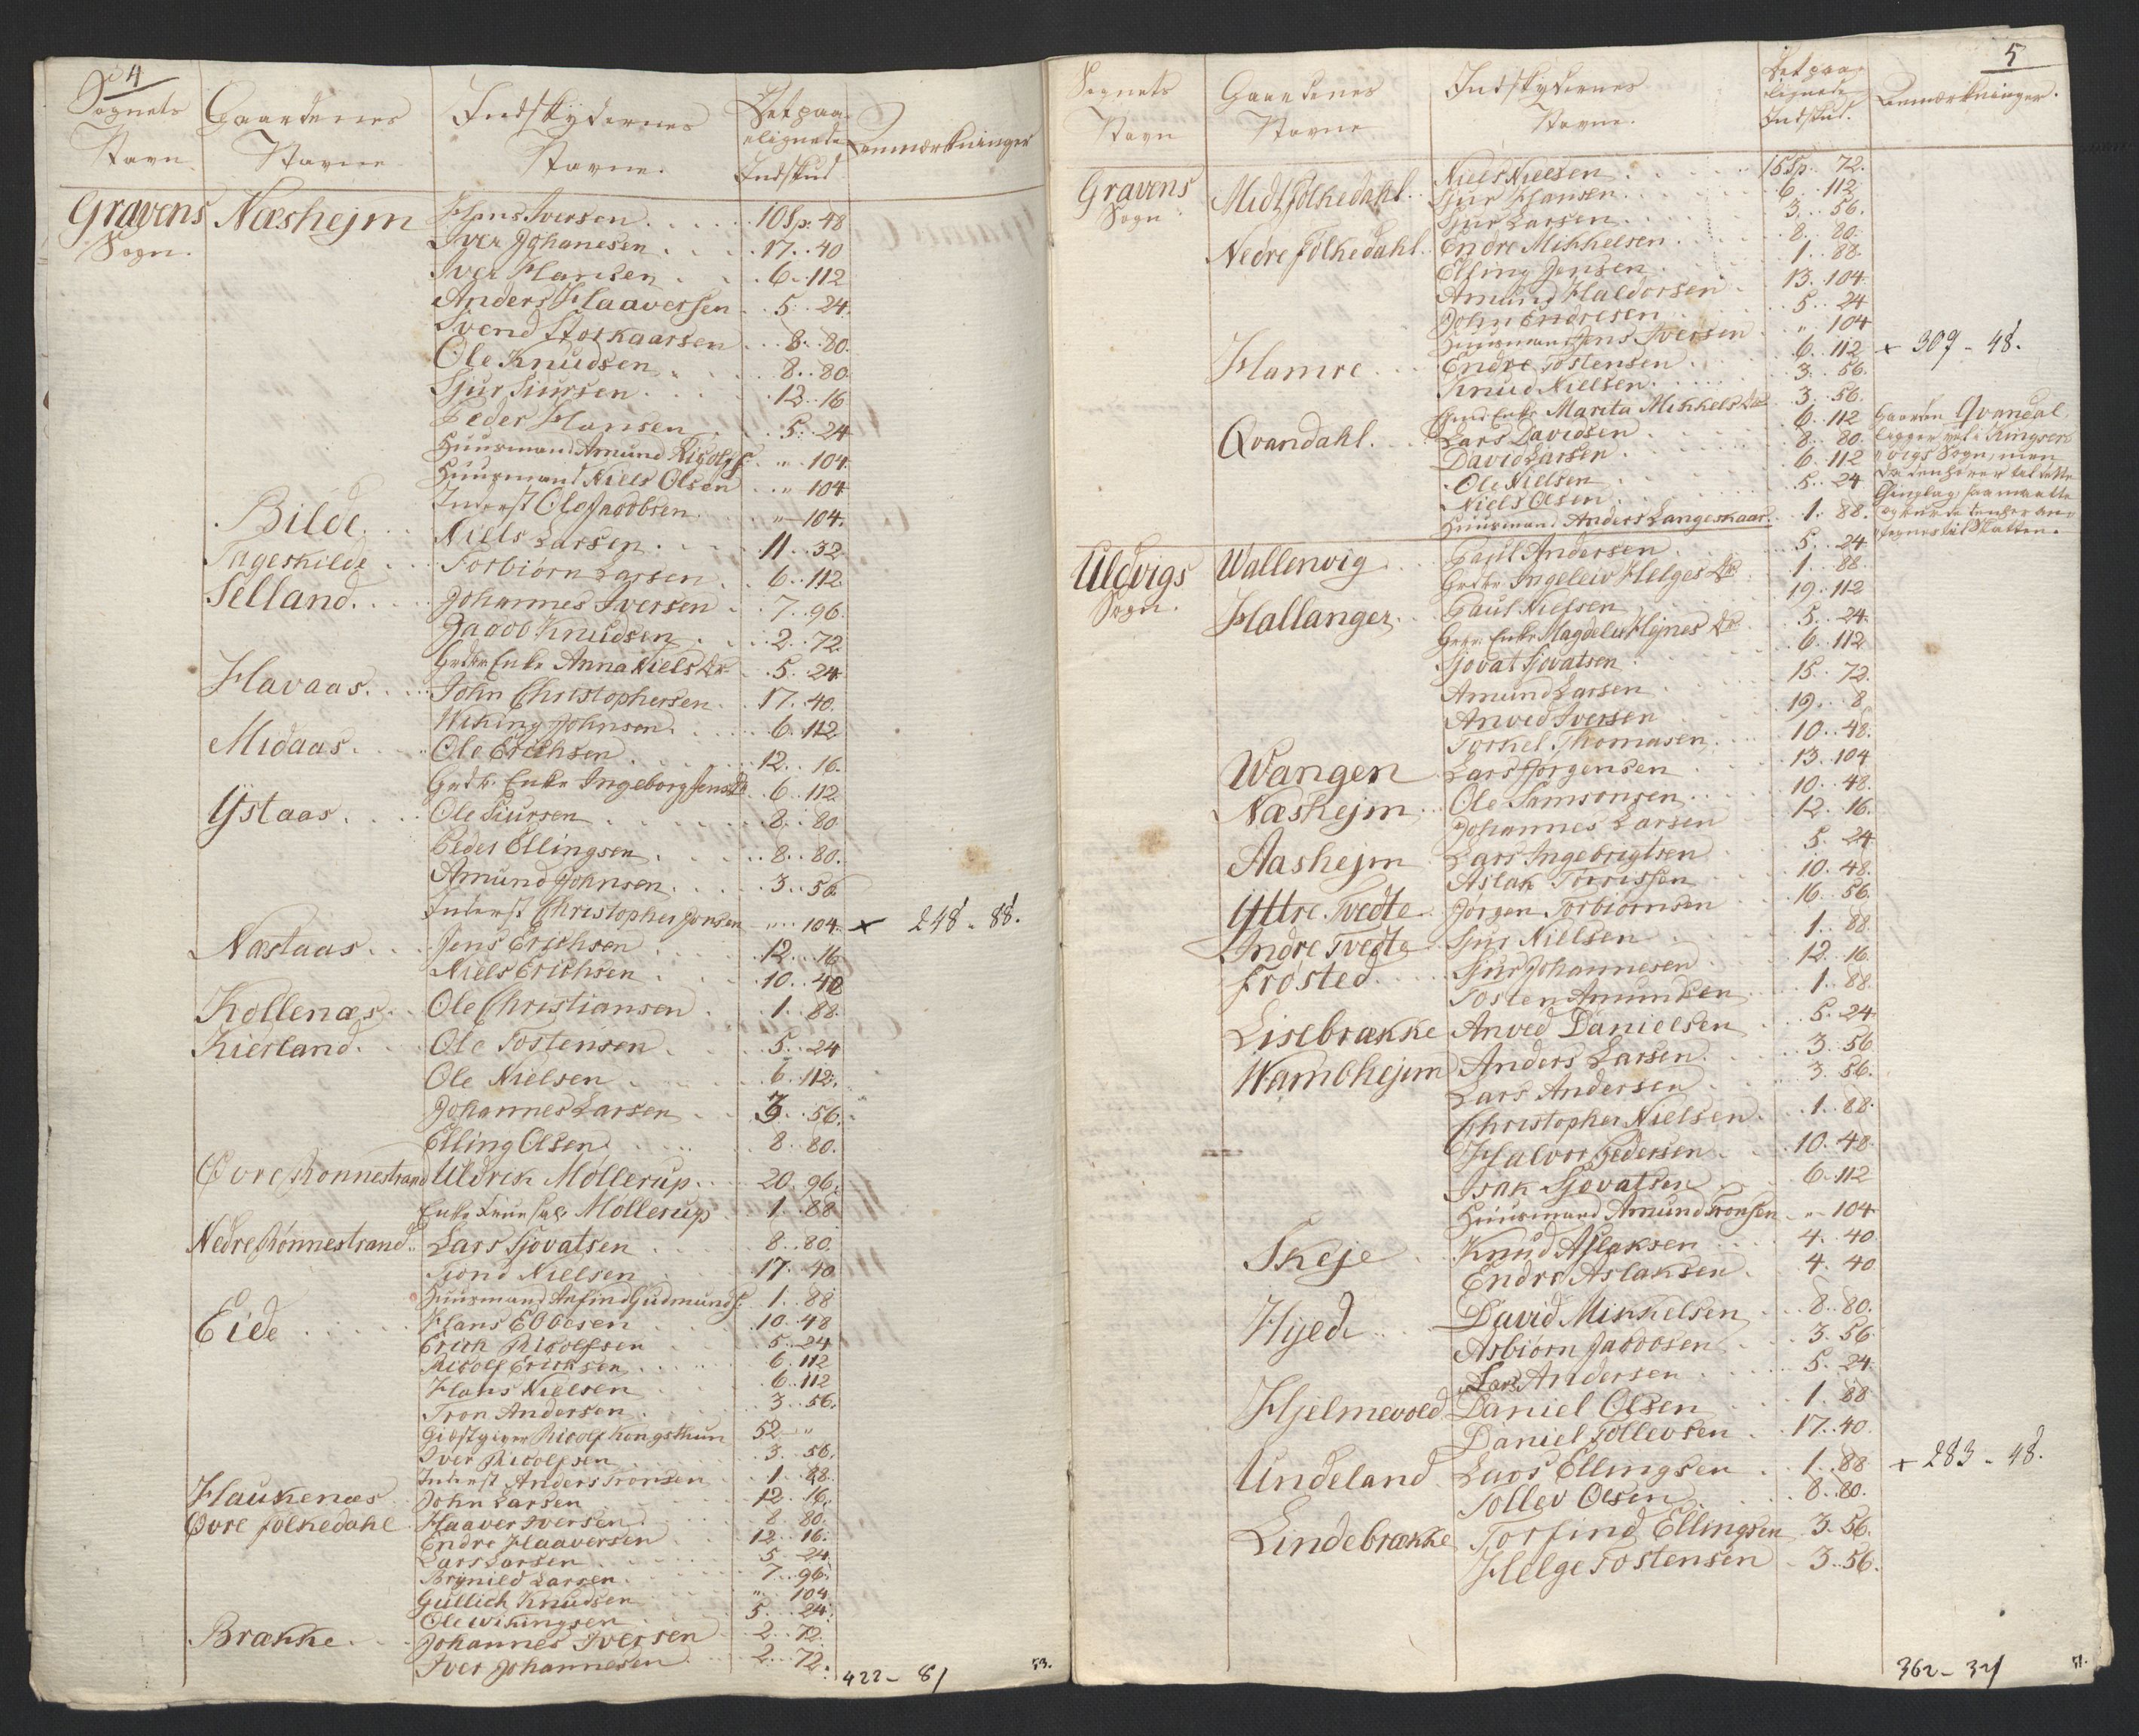 4
Sognets Navn | Gaardenes Navne | Indskydernes Navne. | Det paalignede Indskud | Anmærkninger
Gravens Sogn. | Næshejm | Hans Iversen | 10 Sp. 48
Iver Johanesen | 17. 40
Iver Hansen | 6. 112
Anders Haaversen | 5. 24.
Svend Storkaarsen | 8. 80.
Ole Knudsen | 8. 80
Sjur Siursen | 12. 16
Peder Hansen | 5. 24
Huusmand Amund Ricolfs. | " 104.
Huusmand Niels Olsen | " 104
Inderst Ole Jacobsen | " 104.
Bilde | Niels Larsen | 11. 32
Tageskilde | Torbiørn Larsen | 6. 112.
Selland | Johannes Iversen | 7. 96.
Jacob Knudsen | 2. 72
Gvdbr Enke Anna Niels Dr | 5. 24
Havaas | John Christophersen | 17. 40.
Wiking Johnsen | 6. 112
Midaas | Ole Erichsen | 12. 16.
Gvdbr. Enke Ingeborg Jens D. | 6. 112
Ystaas | Ole Siursen | 8. 80
Peder Ellingsen | 8. 80.
Amund Johnsen | 3. 56
Inderst Christopher Jonsen | " 104. | × 248 - 88.
Næstaas | Jens Erichsen | 12. 16
Niels Erichsen | 10. 48
Kollenæs | Ole Christiansen | 1. 88.
Kierland | Ole Tostensen | 5. 24
Ole Nielsen | 6. 112.
Johannes Larsen | 3. 56.
Elling Olsen | 8. 80.
Øvre Rønnestrand | Uldrik Møllerup | 20. 96.
Enke Frue Sal. Møllerup | 1. 88
Nedre Rønnestrand | Lars Sjovatsen | 8. 80.
Trond Nielsen | 17. 40
Huusmand Anfind Gudmunds. | 1. 88
Eide | Hans Ebbesen | 10. 48
Erich Ricolfsen | 5. 24
Ricolf Ericksen | 6. 112
Hans Nielsen | 6. 112
Tron Andersen | 3. 56.
Giæstgiver Ricolf Kongsthun | 52 "
Iver Ricolfsen | 3. 56.
Inderst Anders Tronsen | 1. 88.
Haukenæs | John Larsen | 12. 16.
Øvre Folkedahl | Haaver Iversen | 8. 80.
Endre Haaversen | 12. 16.
Lars Larsen | 5. 24
Brynild Larsen | 7. 96.
Gullich Knudsen | " 104
Ole Wikingsen | 5. 24.
Brække | Johannes Iversen | 2. 72.
Iver Johannesen | 2. 72.
422 - 8/ 53.
5
Sognets Navn | Gaardenes Navne | Indskydernes Navne. | Det paalignede Indskud. | Anmærkninger.
Gravens Sogn | Midt Folkedahl | Niels Nielsen | 15 Sp. 72.
Sjur Hansen | 6. 112
Sjur Larsen | 3. 56.
Nedre Folkedahl | Endre Mikkelsen | 8. 80.
Elling Jensen | 1. 88.
Amund Haldorsen | 13. 104.
John Endresen | 5. 24
Huusmand Jens Iversen | " 104
Hamre | Endre Tostensen | 6. 112 | × 309 - 48.
Knud Nielsen | 3. 56.
Gvd. Enke Marita Mikkels Dr | 3. 56.
Qvandahl. | Lars Davidsen | 6. 112 | Gaarden Qvandal
David Larsen | 8. 80. | ligger vel i Kingser-
Ole Nielsen | 6. 112 | vigs Sogn, men
Niels Olsen | 5. 24 | da den hører til dette
Huusmand Anders Langeskaar. | 1. 88. | Thinglag, saa maatte
og burde den her an-
tegnes til Skatten.
Uldvigs Sogn. | Wallenvig | Paul Andersen | 5. 24
Gvdbr Ingeleiv Helges Dr | 1. 88.
Hallanger | Paul Nielsen | 19. 112
Gvdbr Enke Magdele Hejnes Dr | 5. 24.
Sjovat Sjovatsen | 6. 112
Amund Larsen | 15. 72.
Anved Iversen | 19. 8
Torkel Thomasen | 10. 48.
Wangen | Lars Jørgensen | 13. 104
Næshejm | Ole Samsonsen | 10. 48.
Johannes Larsen | 12. 16.
Aashejm | Lars Ingebrigtsen | 5. 24
Aslak Torrissen | 10. 48.
Yttre Tvedte | Jørgen Torbiørnsen | 16. 56.
Indre Tvedte | Sjur Nielsen | 1. 88.
Frøsted | Sjur Johannesen | 12. 16.
Tosten Amundsen | 1. 88.
Lisebrække | Anved Danielsen | 5. 24
Wambhejm | Anders Larsen | 3. 56
Lars Andersen | 3. 56.
Christopher Nielsen | 1. 88.
Halvor Pedersen | 10. 48.
Isak Sjovatsen | 6. 112
Huusmand Amund Tronsen | " 104
Skeje | Knud Aslaksen | 4. 40
Endre Aslaksen | 4. 40
Hyedi | David Mikkelsen | 8. 80.
Asbiørn Jacobsen | 3. 56
Lars Andersen | 5. 24.
Hjelmevold | Daniel Olsen | 1. 88
Daniel Tollevsen | 17. 40.
Undeland | Lars Ellingsen | 1. 88 | + 283 - 48.
Tollev Olsen | 8. 80.
Lindebrække | Torfind Ellingsen | 3. 56.
Helge Tostensen | 3. 56.
362 - 32/ 51.